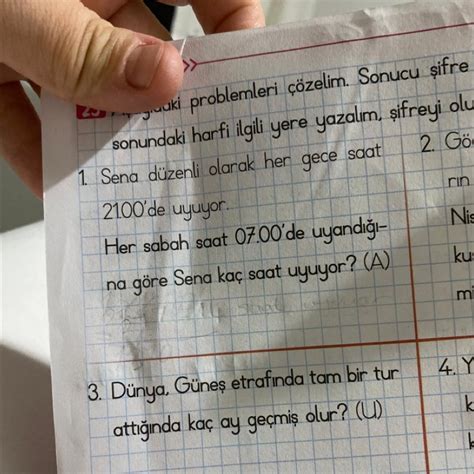 25 problemleri çözelim. Sonucu şifre
sonundaki harfi ilgili yere yazalım, şifreyi olu
1. Sena düzenli olarak her gece saat
21.00'de uyuyor.
Her sabah saat 07.00'de uyandığı-
na göre Sena kaç saat uyuyor? (A)
2. Gö
rın
Nis
ku
mi
3. Dünya, Güneş etrafında tam bir tur
attığında kaç ay geçmiş olur? (U)
4. Y
k
k